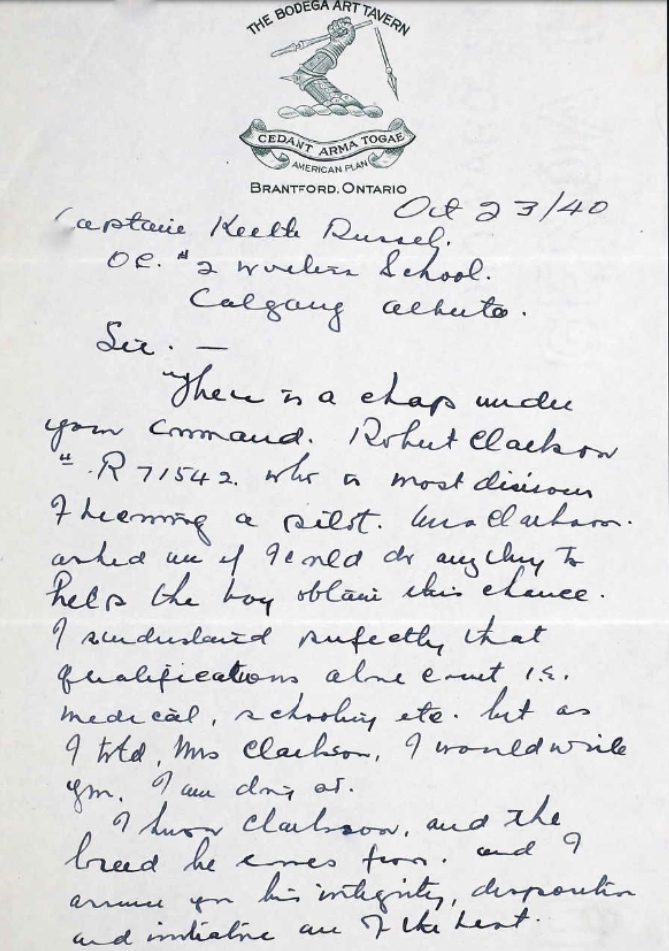 THE BODEGA ART TAVERN
CEDANT ARMA TOGAE
AMERICAN PLAN
BRANTFORD, ONTARIO
Oct 23/40
Captain Keith Russel.
O.C. #2 Wireless School.
Calgary Alberta.
Sir. —
There is a chap under
your command. Robert Clarkson
# R 71542. who is most desirous
of becoming a pilot. Mrs Clarkson.
asked me if I could do anything to
help the boy obtain this chance.
I understand perfectly that
qualifications alone count i.e.
medical, schooling etc. but as
I told, Mrs Clarkson, I would write
you. I am doing so.
I know Clarkson, and the
breed he comes from. and I
assure you his integrity, disposition
and initiative are of the best.